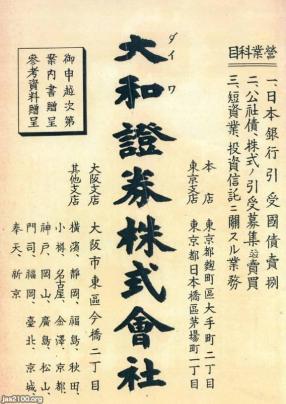 營業科目
一、日本銀行引受國債賣捌
二、公社債、株式ノ引受募集並賣買
三、短資業、投資信託ニ關スル業務
本店 東京都麴町區大手町二丁目
東京支店 東京都日本橋區茅場町一丁目
ダイワ
大和證券株式會社
大阪支店 大阪市東區今橋二丁目
其他支店 橫濱、靜岡、福島、秋田、
小樽、名古屋、金澤、京都、
神戶、岡山、廣島、松山、
門司、福岡、臺北、京城、
奉天、新京
御申越次第
案內書贈呈
參考資料贈呈
jaa2100.org